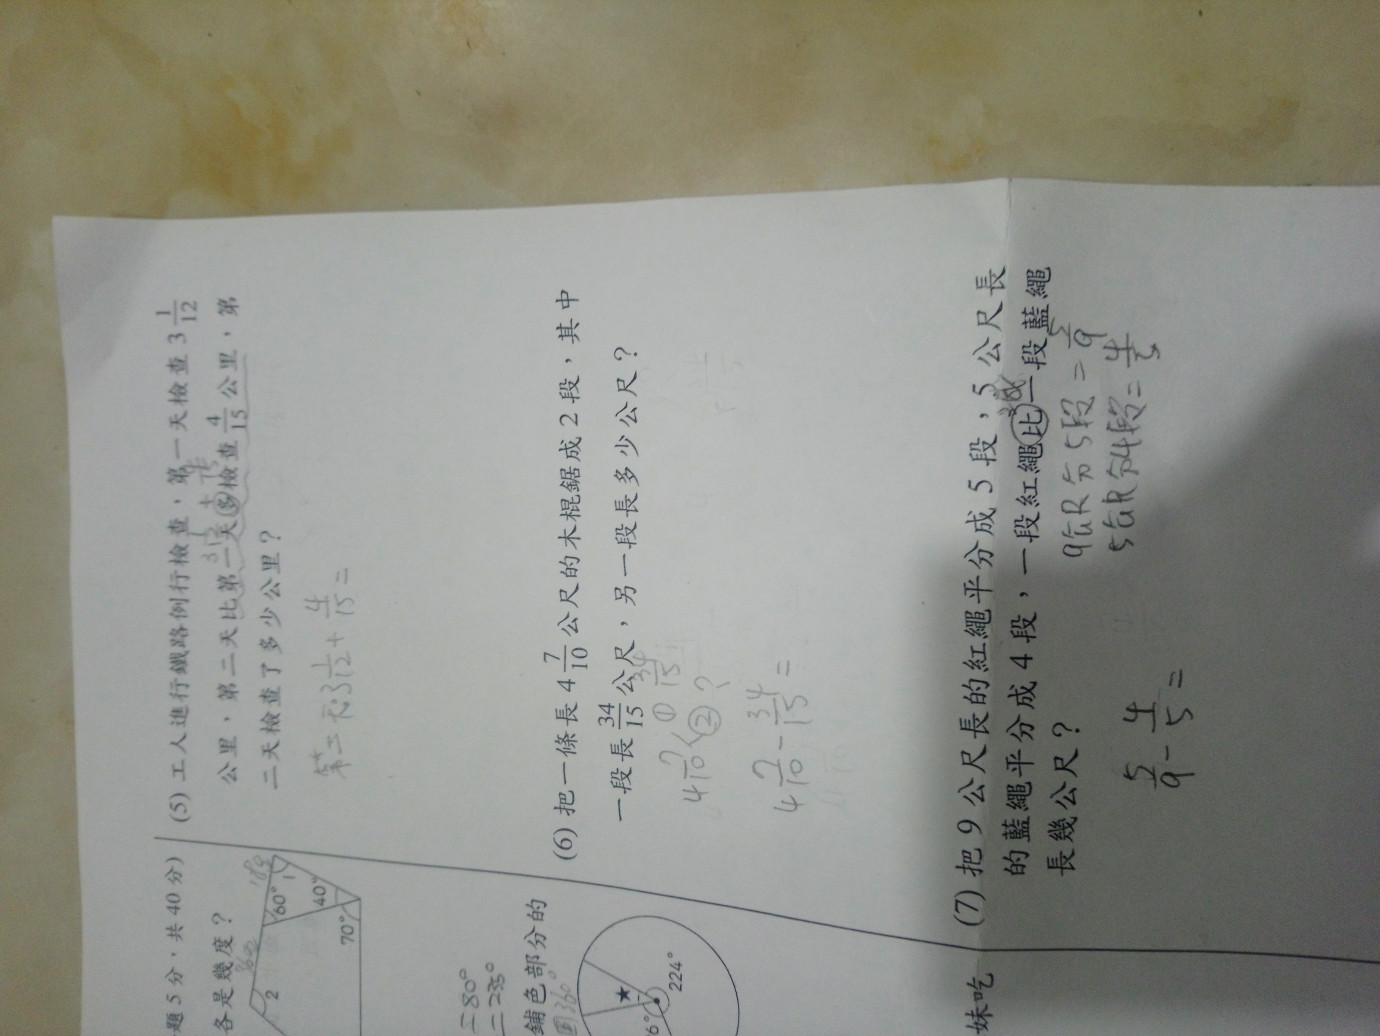 題5分，共40分)
各是幾度？
60°
1
40°
70°
2
鋪色部分的
224°
6°
妹吃
(5) 工人進行鐵路例行檢查，第一天檢查 3 1/12
公里，第二天比第一天多檢查 4/15 公里，第
二天檢查了多少公里？
3 1/12 + 4/15 =
(6) 把一條長 4 7/10 公尺的木棍鋸成 2 段，其中
一段長 34/15 公尺，另一段長多少公尺？
4 7/10 < ① 34/15
② ?
4 7/10 - 34/15 =
(7) 把 9 公尺長的紅繩平分成 5 段，5 公尺長
的藍繩平分成 4 段，一段紅繩比一段藍繩
長幾公尺？
9公尺分5段 = 5/9
5公尺分4段 = 4/5
5/9 - 4/5 =